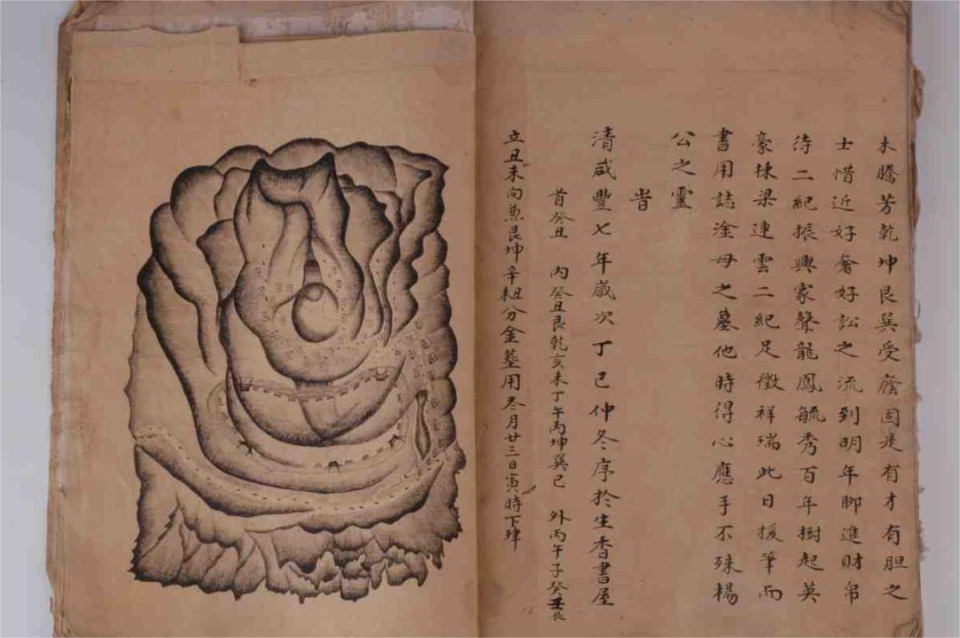 未騰芳乾坤艮巽受廕因是有才有胆之
士惜近好奢好訟之流到明年即進財帛
待二紀振興家聲龍鳳毓秀百年樹起英
豪棟梁連雲二紀足徵祥瑞此日援筆而
書用誌塗母之墓他時得心應手不殊楊
公之靈
旹
清咸豐七年歲次丁巳仲冬序於生香書屋
首癸丑 丙癸丑艮乾亥未丁午丙坤巽巳 外丙午子癸丑艮
立丑未向兼艮坤辛丑分金墓用冬月廿三日寅時下肂